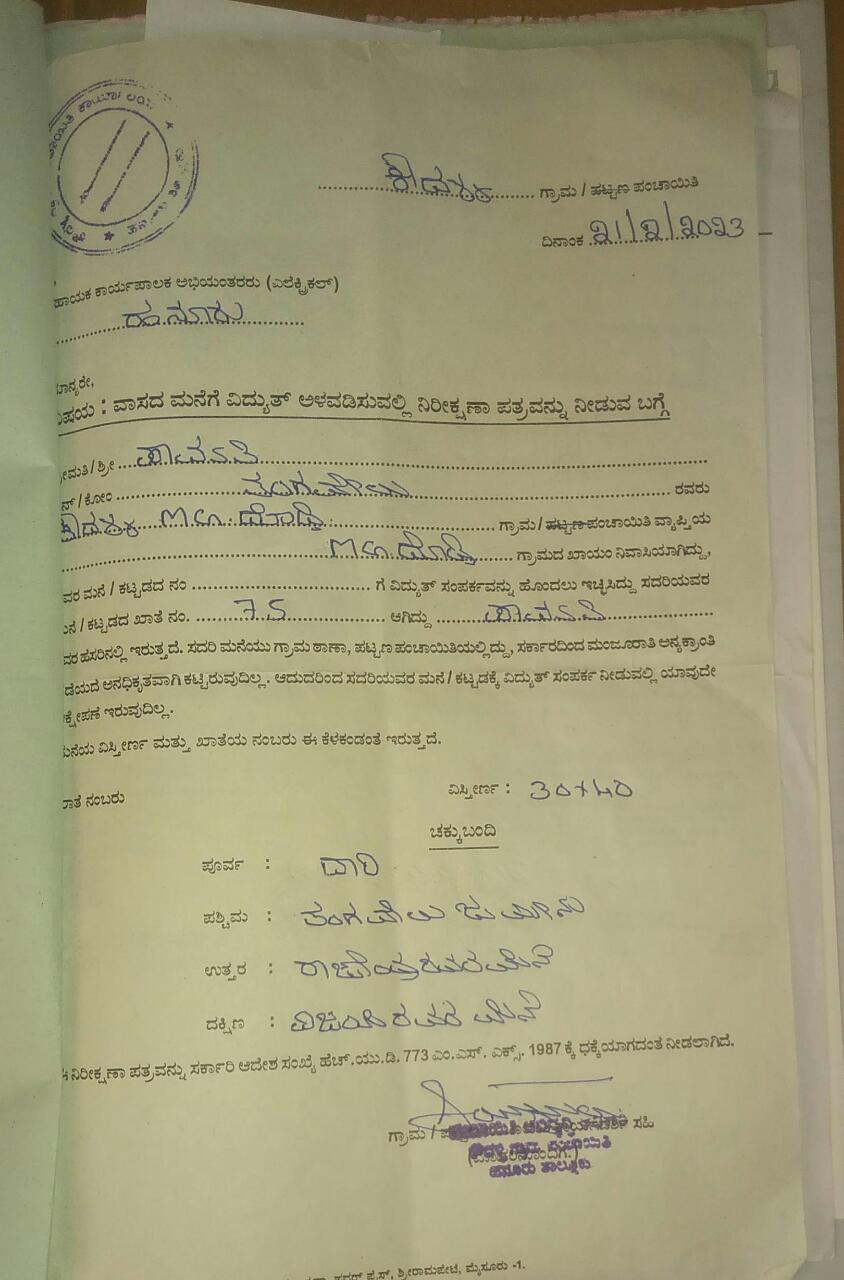 ಗ್ರಾಮ / ಪಟ್ಟಣ ಪಂಚಾಯಿತಿ
ದಿನಾಂಕ 21/2/2023
ಹಾಯಕ ಕಾರ್ಯಪಾಲಕ ಅಭಿಯಂತರರು (ಎಲೆಕ್ಟ್ರಿಕಲ್)
ಹನೂರು
ಮಾನ್ಯರೇ,
ವಿಷಯ : ವಾಸದ ಮನೆಗೆ ವಿದ್ಯುತ್ ಅಳವಡಿಸುವಲ್ಲಿ ನಿರೀಕ್ಷಣಾ ಪತ್ರವನ್ನು ನೀಡುವ ಬಗ್ಗೆ
ಶ್ರೀಮತಿ / ಶ್ರೀ
ನ್ / ಕೋಂ ತಂಗವೇಲು ರವರು
ಗ್ರಾಮ / ಪಟ್ಟಣ ಪಂಚಾಯಿತಿ ವ್ಯಾಪ್ತಿಯ
ಗ್ರಾಮದ ಖಾಯಂ ನಿವಾಸಿಯಾಗಿದ್ದು,
ವರ ಮನೆ / ಕಟ್ಟಡದ ನಂ ಗೆ ವಿದ್ಯುತ್ ಸಂಪರ್ಕವನ್ನು ಹೊಂದಲು ಇಚ್ಛಿಸಿದ್ದು ಸದರಿಯವರ
ಮನೆ / ಕಟ್ಟಡದ ಖಾತೆ ನಂ. 75 ಆಗಿದ್ದು
ವರ ಹಸರಿನಲ್ಲಿ ಇರುತ್ತದೆ. ಸದರಿ ಮನೆಯು ಗ್ರಾಮ ಠಾಣಾ, ಪಟ್ಟಣ ಪಂಚಾಯಿತಿಯಲ್ಲಿದ್ದು, ಸರ್ಕಾರದಿಂದ ಮಂಜೂರಾತಿ ಅನ್ಯಕ್ರಾಂತಿ
ಡೆಯದೆ ಅನಧಿಕೃತವಾಗಿ ಕಟ್ಟಿರುವುದಿಲ್ಲ. ಆದುದರಿಂದ ಸದರಿಯವರ ಮನೆ / ಕಟ್ಟಡಕ್ಕೆ ವಿದ್ಯುತ್ ಸಂಪರ್ಕ ನೀಡುವಲ್ಲಿ ಯಾವುದೇ
ಕ್ಷೇಪಣೆ ಇರುವುದಿಲ್ಲ.
ಮನೆಯ ವಿಸ್ತೀರ್ಣ ಮತ್ತು ಖಾತೆಯ ನಂಬರು ಈ ಕೆಳಕಂಡಂತೆ ಇರುತ್ತದೆ.
ಖಾತೆ ನಂಬರು ವಿಸ್ತೀರ್ಣ : 30×40
ಚಕ್ಕುಬಂದಿ
ಪೂರ್ವ : ದಾರಿ
ಪಶ್ಚಿಮ : ತಂಗವೇಲು ಜಮೀನು
ಉತ್ತರ : ರಾಜೇಂದ್ರರವರ ಮನೆ
ದಕ್ಷಿಣ : ವಿಜಯರವರ ಮನೆ
ಈ ನಿರೀಕ್ಷಣಾ ಪತ್ರವನ್ನು ಸರ್ಕಾರಿ ಆದೇಶ ಸಂಖ್ಯೆ ಹೆಚ್.ಯು.ಡಿ. 773 ಎಂ.ಎಸ್. ಎಕ್ಸ್. 1987 ಕ್ಕೆ ಧಕ್ಕೆಯಾಗದಂತೆ ನೀಡಲಾಗಿದೆ.
ಗ್ರಾಮ / ಸಹಿ
ಹನೂರು ತಾಲ್ಲೂಕು
ಶ್ರೀರಾಮಪೇಟೆ, ಮೈಸೂರು -1.